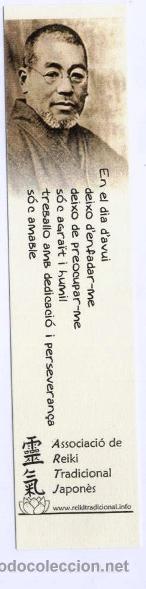 En el dia d'avui
deixo d'enfadar-me
deixo de preocupar-me
sóc agraït i humil
treballo amb dedicació i perseverança
sóc amable
靈氣
Associació de
Reiki
Tradicional
Japonès
www.reikitradicional.info
todocoleccion.net